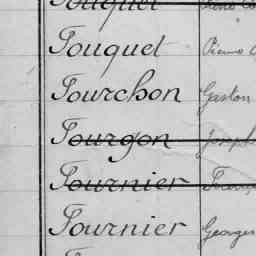 Fouquet
Fouquet Pierre
Fourchon Gaston
Fourgon Joseph
Fournier
Fournier Georges